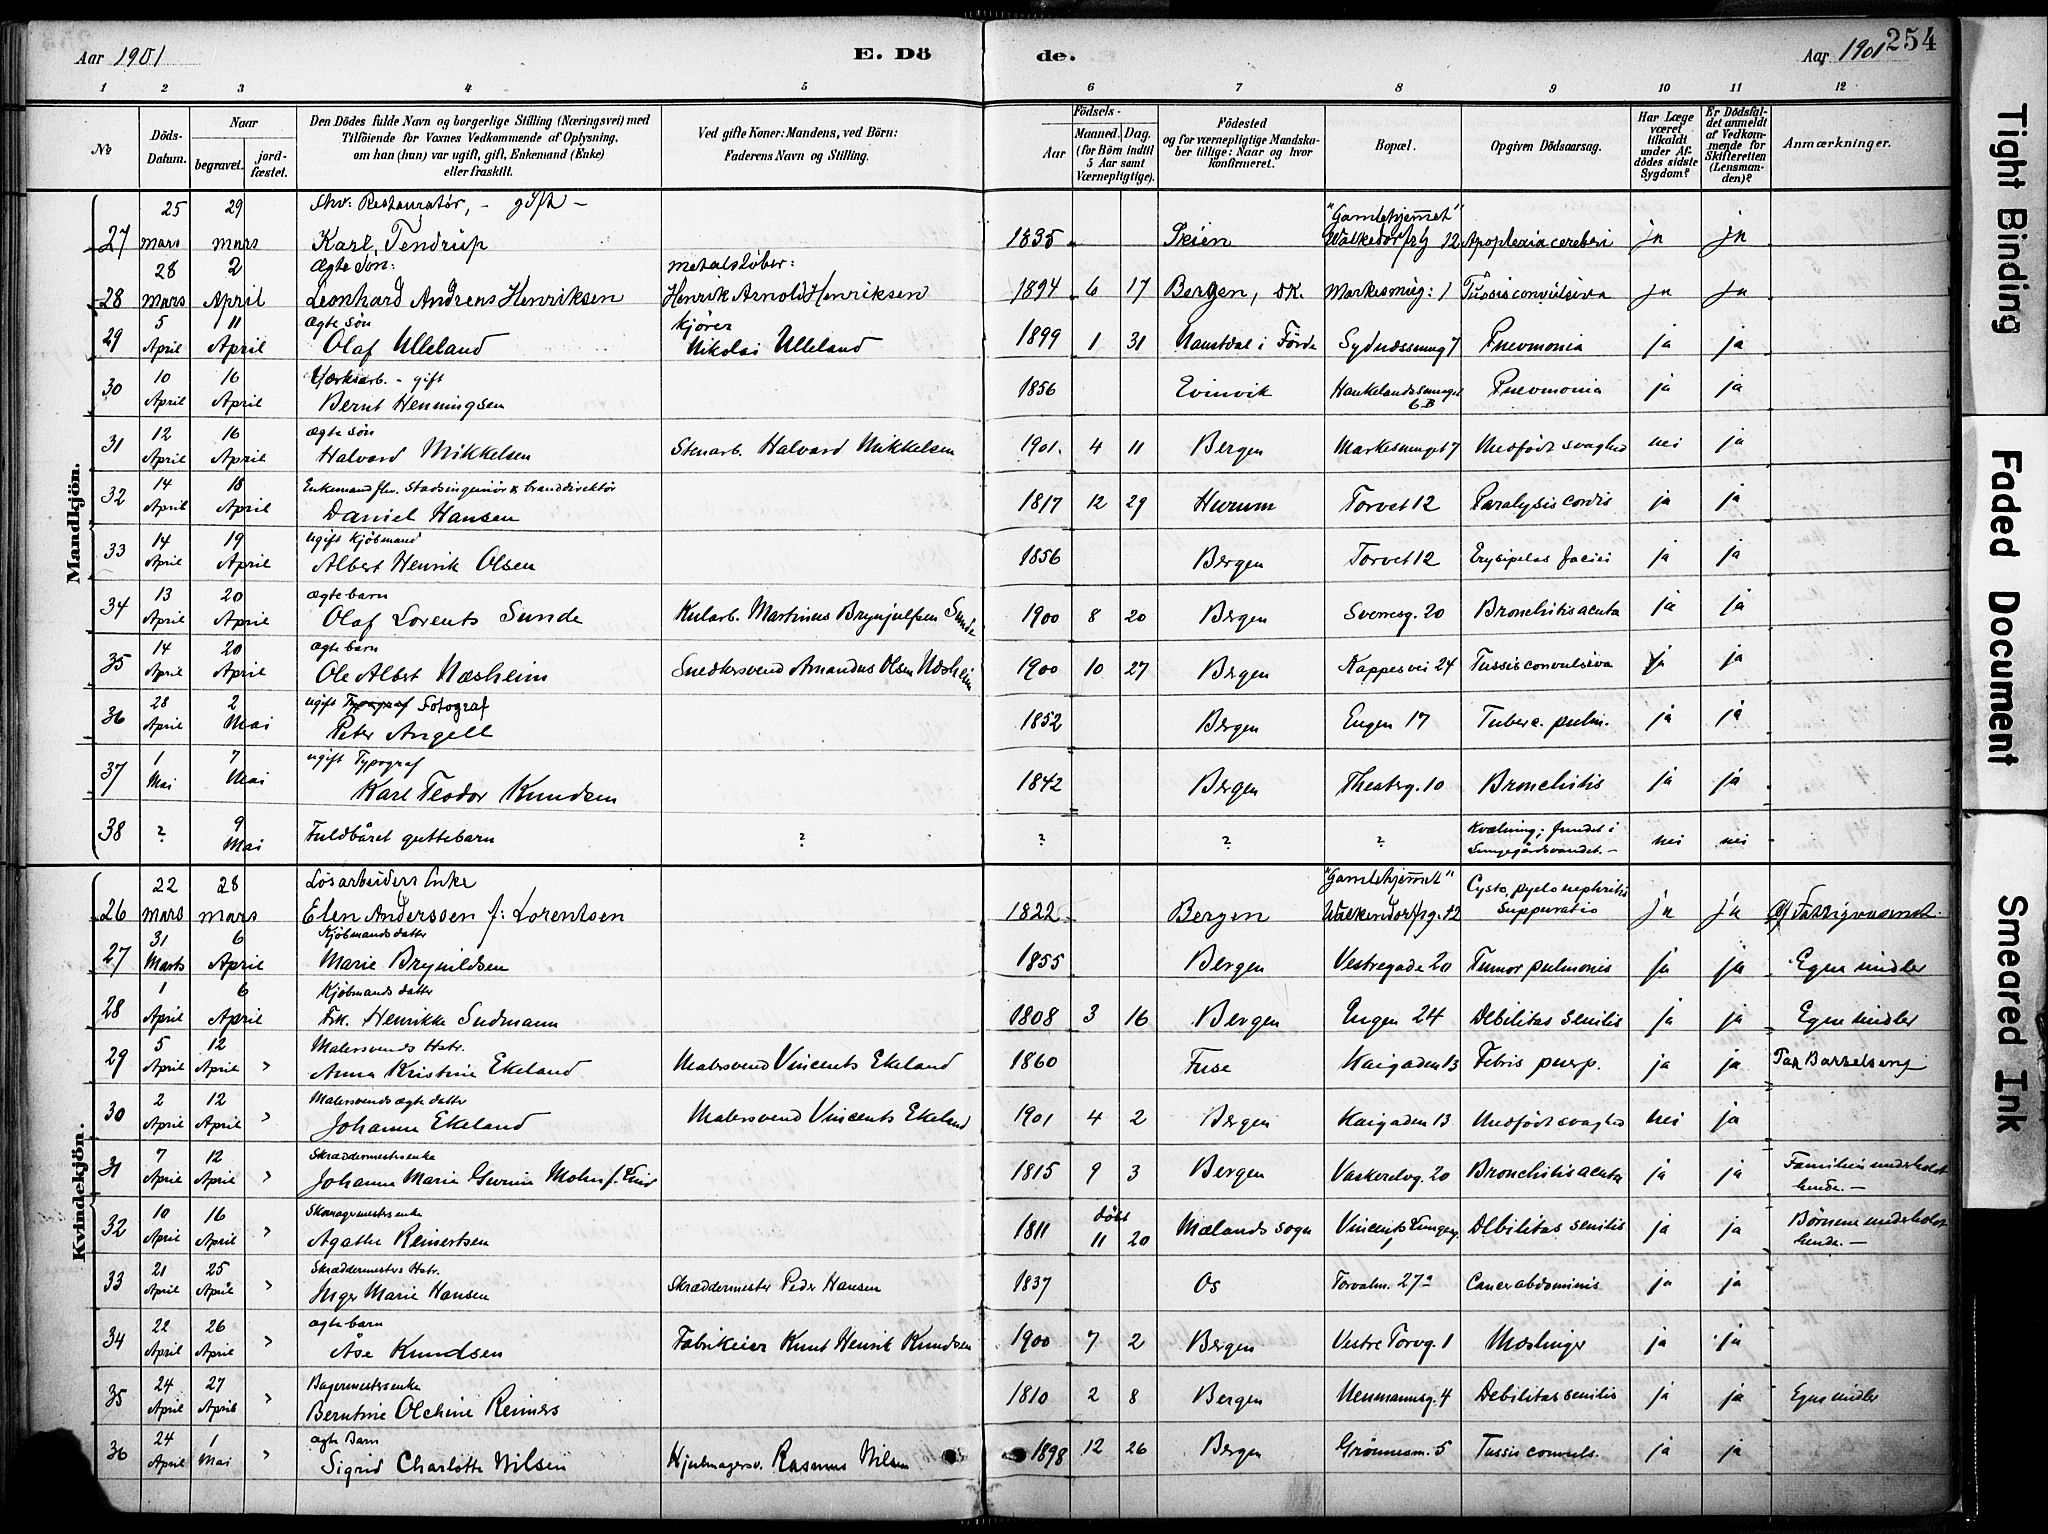 Aar 1901 E. Dö de. Aar 1901 254
1 2 3 4 5 6 7 8 9 10 11 12
No
Döds-Datum.
Naar
begravet.
jord-fæstet.
Den Dödes fulde Navn og borgerlige Stilling (Næringsvei) med
Tilföiende for Voxnes Vedkommende af Oplysning,
om han (hun) var ugift, gift, Enkemand (Enke)
eller fraskilt.
Ved gifte Koner: Mandens, ved Börn:
Faderens Navn og Stilling.
Födsels-
Aar
Maaned. Dag.
(for Börn indtil
5 Aar samt
Værnepligtige).
Födested
og for værnepligtige Mandska-
ber tillige: Naar og hvor
konfirmeret.
Bopæl.
Opgiven Dödsaarsag.
Har Læge
været
tilkaldt
under Af-
dödes sidste
Sygdom?
Er Dödsfal-
det anmeldt
af Vedkom-
mende for
Skifteretten
(Lensman-
den)?
Anmærkninger.
Mandkjön.
25 29 Restauratør, - gift - "Gamlehjemmet"
27 mars mars Karl Tendrup 1835 Skien 12 Apoplexia cerebri ja ja
28 2 Ægte Søn: Metalstøber:
28 mars April Leonhard Andreas Henriksen Henrik Arnold Henriksen 1894 6 17 Bergen, DK. Markesmug: 1 Tussis convulsiva ja ja
5 11 ægte søn kjører
29 April April Olaf Ulleland Nikolai Ulleland 1899 1 31 Naustdal i Førde Sydnæssmug 7 Pnevmonia ja ja
10 16 Værksarb. - gift
30 April April Bernt Henningsen 1856 Evinvik Haukelandssmuget 6B Pnevmonia ja ja
12 16 ægte søn
31 April April Halvard Mikkelsen Stenarb. Halvard Mikkelsen 1901. 4 11 Bergen Markesmuget 7 Medfødt svaghed nei ja
14 18 Enkemand fhv. Stadsingeniør & branddirektør
32 April April Daniel Hansen 1817 12 29 Hurum Torvet 12 Paralysis cordis ja ja
14 19 ugift kjøbmand
33 April April Albert Henrik Olsen 1856 Bergen Torvet 12 Erysipelas faciei ja ja
13 20 ægte barn
34 April April Olaf Lorents Sunde Kularb. Martinus Brynjulfsen Sunde 1900 8 20 Bergen Sverresg. 20 Bronchitis acuta ja ja
14 20 ægte barn
35 April April Ole Albert Næsheim Snedkersvend Amandus Olsen Næsheim 1900 10 27 Bergen Kappesvei 24 Tussis convulsiva ja ja
28 2 ugift Typograf Fotograf
36 April Mai Peter Angell 1852 Bergen Engen 17 Tuberc. pulm. ja ja
1 7 ugift Typograf
37 Mai Mai Karl Teodor Knudsen 1842 Bergen Theaterg. 10 Bronchitis ja ja
38 ? 9 Mai Fuldbåret guttebarn ? ? ? ? Kvælning; fundet i
Lungegårdsvandet. - nei nei
Kvindekjön.
22 28 Løsarbeiders Enke "Gamlehjemmet" Cysto pyelo nephritis
26 mars mars Elen Anderssen f: Lorentsen 1822 Bergen Walkendorfsg. 12 suppurativ ja ja Af Fattigvæsenet.
31 6 Kjøbmandsdatter
27 Marts April Marie Brynildsen 1855 Bergen Vestregade 20 Tumor pulmonis ja ja Egne midler
1 6 Kjøbmandsdatter
28 April April Frk. Henrikke Sudmann 1808 3 16 Bergen Engen 24 Debilitas senilis ja ja Egne midler
5 12 Malersvends Hstr.
29 April April " Anna Kristine Ekeland Malersvend Vincents Ekeland 1860 Fuse Kaigaden 13 Febris puerp. ja ja Paa Barselseng
2 12 Malersvends ægte datter
30 April April " Johanne Ekeland Malersvend Vincents Ekeland 1901 4 2 Bergen Kaigaden 13 Medfødt svaghed nei ja
7 12 Skræddermestersenke
31 April April " Johanne Marie Gurine Mohn f. 1815 9 3 Bergen Vaskerelvg. 20 Bronchitis acuta ja ja Familien underholdt
hende. -
10 16 Skomagermestersenke døbt
32 April April " Agathe Reinertsen 1811 11 20 Mælands sogn Vincents Lungeg. Debilitas senilis ja ja Børnene underholdt
hende. -
21 25 Skræddermesters Hstr.
33 April April " Inger Marie Hansen Skræddermester Peder Hansen 1837 Os Torvalm. 27a Cancer abdominis ja ja
22 26 ægte barn
34 April April " Åse Knudsen Fabrikeier Knut Henrik Knudsen 1900 7 2 Bergen Vestre Torvg. 1 Mæslinger ja ja
24 27 Bagermestersenke
35 April April " Berntine Olchine Reimers 1810 2 8 Bergen Neumannsg. 4 Debilitas senilis ja ja Egne midler
24 1 ægte Barn
36 April Mai " Sigrid Charlotte Nilsen Hjulmagersv. Rasmus Nilsen 1898 12 26 Bergen Grønnesm. 5 Tussis convuls. ja ja
Tight Binding
Faded Document
Smeared Ink